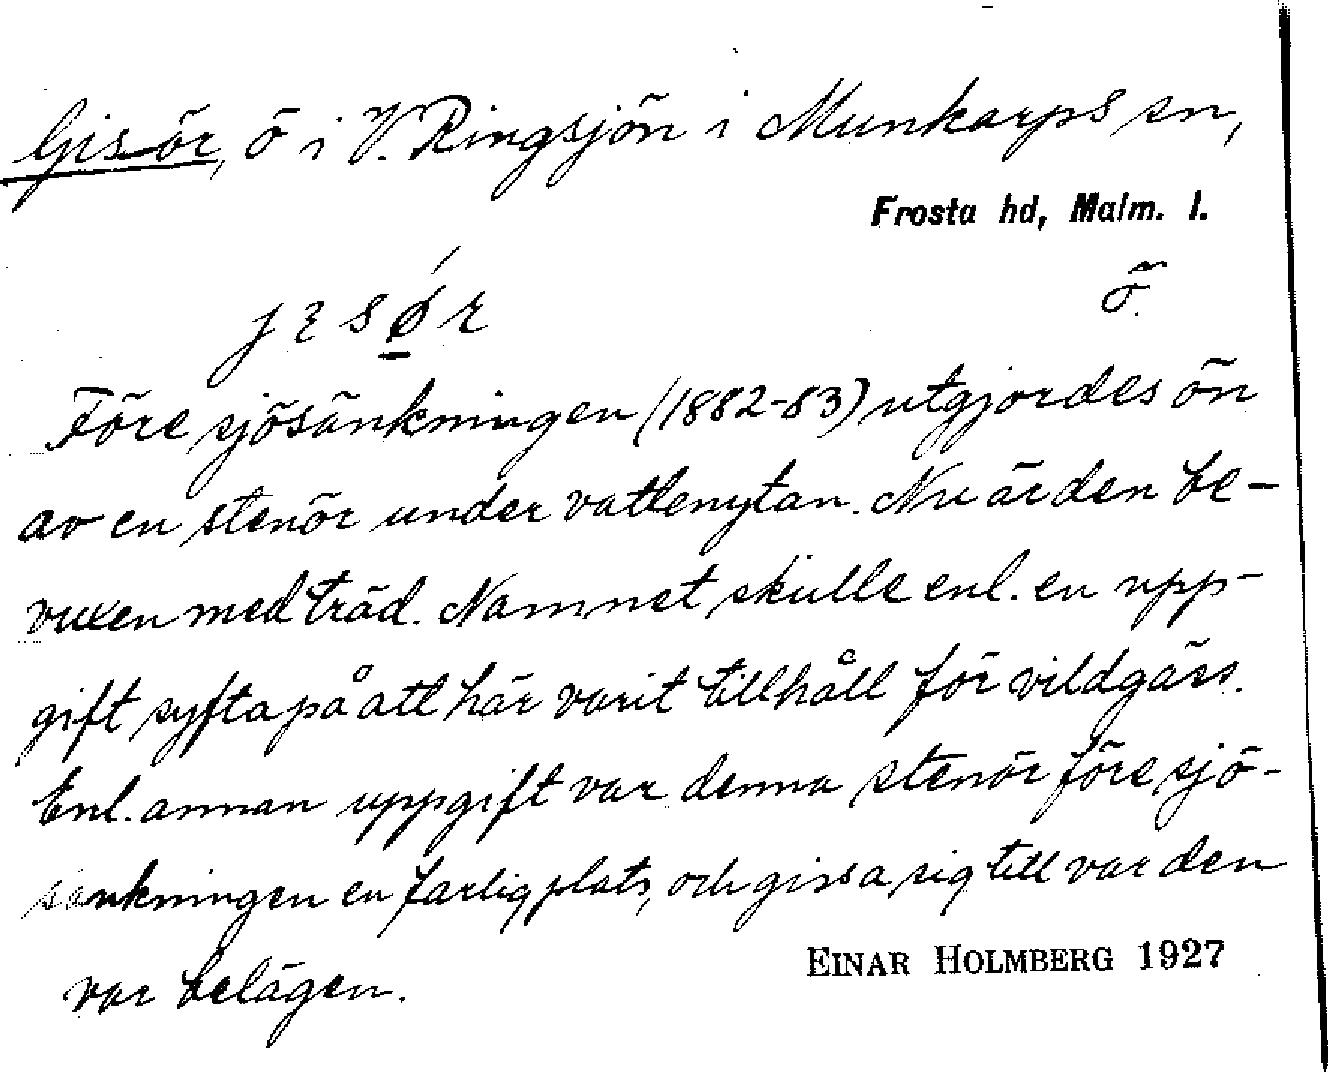 Gisör, ö i V. Ringsjön i Munkarps sn,
Frosta hd, Malm. l.
ö
Före sjösänkningen (1882-83) utgjordes ön
av en stenör under vattenytan. Nu är den be-
vuxen med träd. Namnet skulle enl. en upp-
gift syfta på att här varit tillhåll för vildgäss.
Enl. annan uppgift var denna stenör före sjö-
sänkningen en farlig plats, och gissa sig till var den
var belägen.
EINAR HOLMBERG 1927